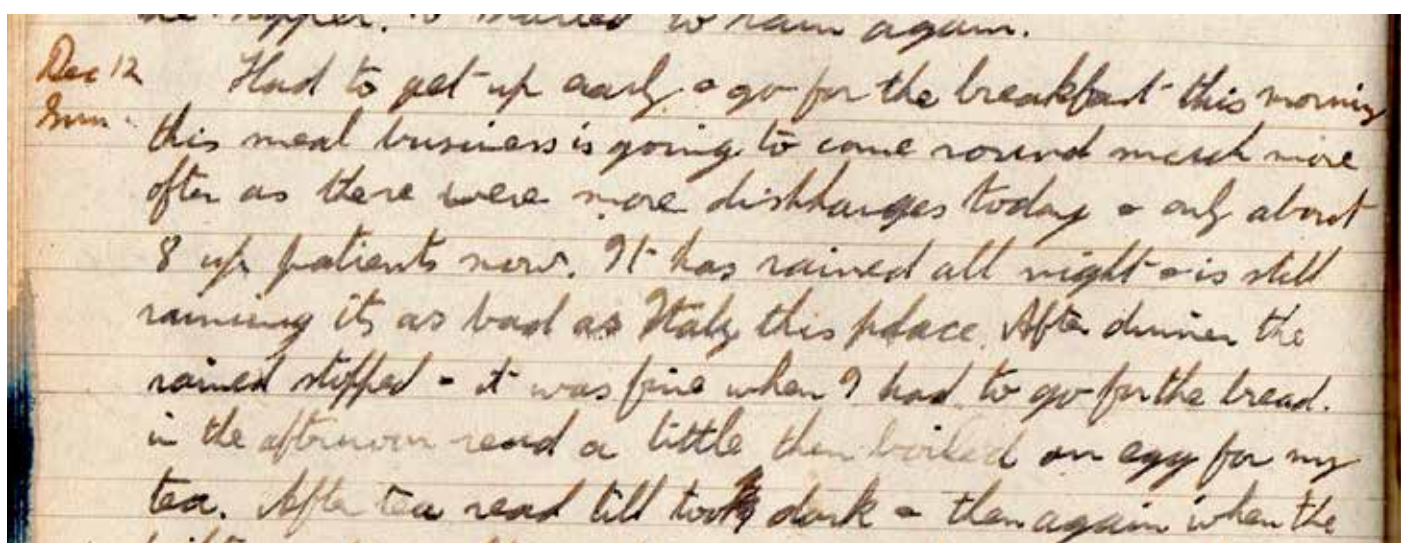 supper. It started to rain again.
Dec 12 Had to get up early & go for the breakfast this morning
Sun. this meal business is going to come round much more
often as there were more dishharges today & only about
8 up patients now. It has rained all night & is still
raining its as bad as Italy this place. After dinner the
rained stopped & it was fine when I had to go for the bread.
in the afternoon read a little then boiled an egg for my
tea. After tea read till took dark & then again when the